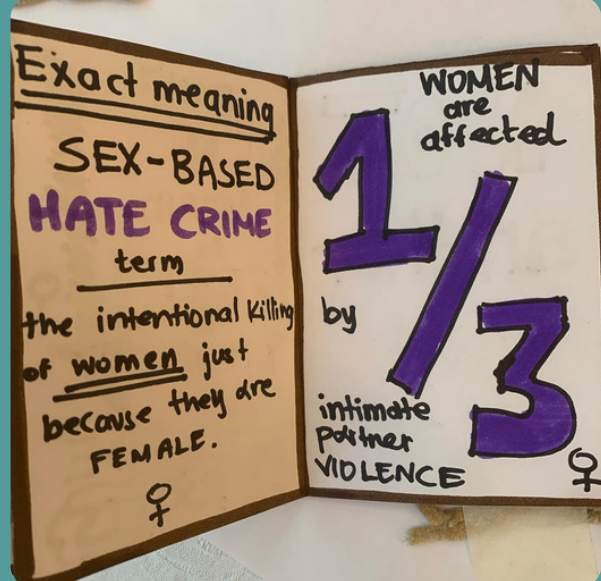 Exact meaning
SEX-BASED
HATE CRIME
term
the intentional killing
of women just
because they are
FEMALE.
♀
WOMEN
are
affected
1/3
by
intimate
partner
VIOLENCE
♀